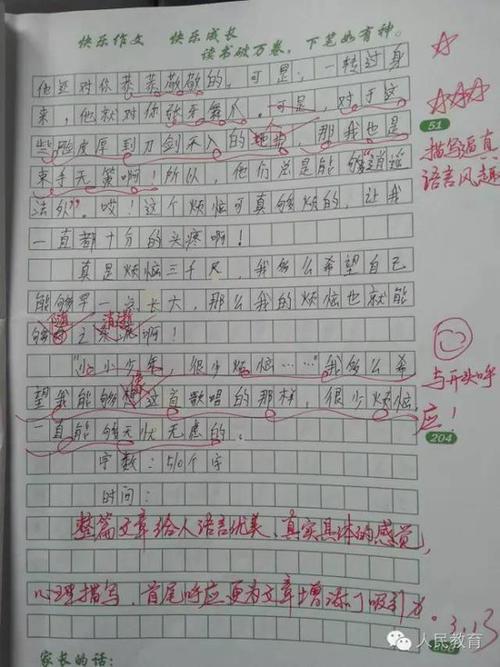 快乐作文 快乐成长
读书破万卷，下笔如有神。
他还对你恭恭敬敬的，可是，一转过身
来，他就对你张牙舞爪。可是，对于这
些脸皮厚到刀剑不入的，那我也是
束手无策啊！所以，他们总是能够逍遥
法外"。哎！这个烦恼可真够烦的，让我
一直都十分的头疼啊！
真是烦恼三千尺，我多么希望自己
能够早一点长大，那么我的烦恼也就能
够随之消逝啊！
"小小少年，很少烦恼……"我多么希
望我能够像这首歌唱的那样，很少烦恼，
一直能够无忧无虑的。
字数：510个字
时间：
51
描写逼真
语言风趣
与开头呼
应！
204
整篇文章给人语言优美、真实具体的感觉，
心理描写、首尾呼应更为文章增添了吸引力。
3.13
家长的话：
人民教育